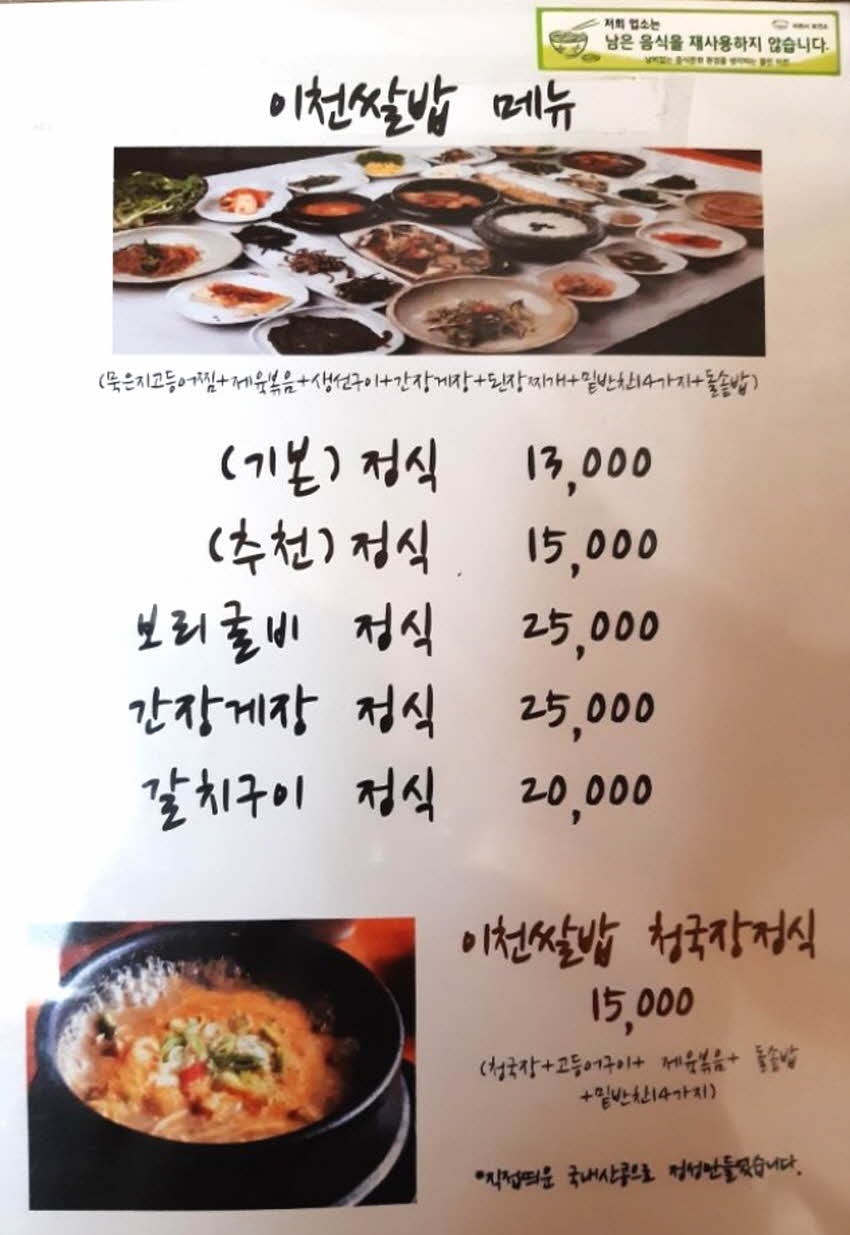 저희 업소는
남은 음식을 재사용하지 않습니다.
이천쌀밥 메뉴
(묵은지고등어찜+제육볶음+생선구이+간장게장+된장찌개+밑반찬14가지+돌솥밥)
(기본) 정식 13,000
(추천) 정식 15,000
보리굴비 정식 25,000
간장게장 정식 25,000
갈치구이 정식 20,000
이천쌀밥 청국장정식
15,000
(청국장+고등어구이+ 제육볶음+ 돌솥밥
+밑반찬14가지)
*직접띄운 국내산콩으로 정성만들었습니다.